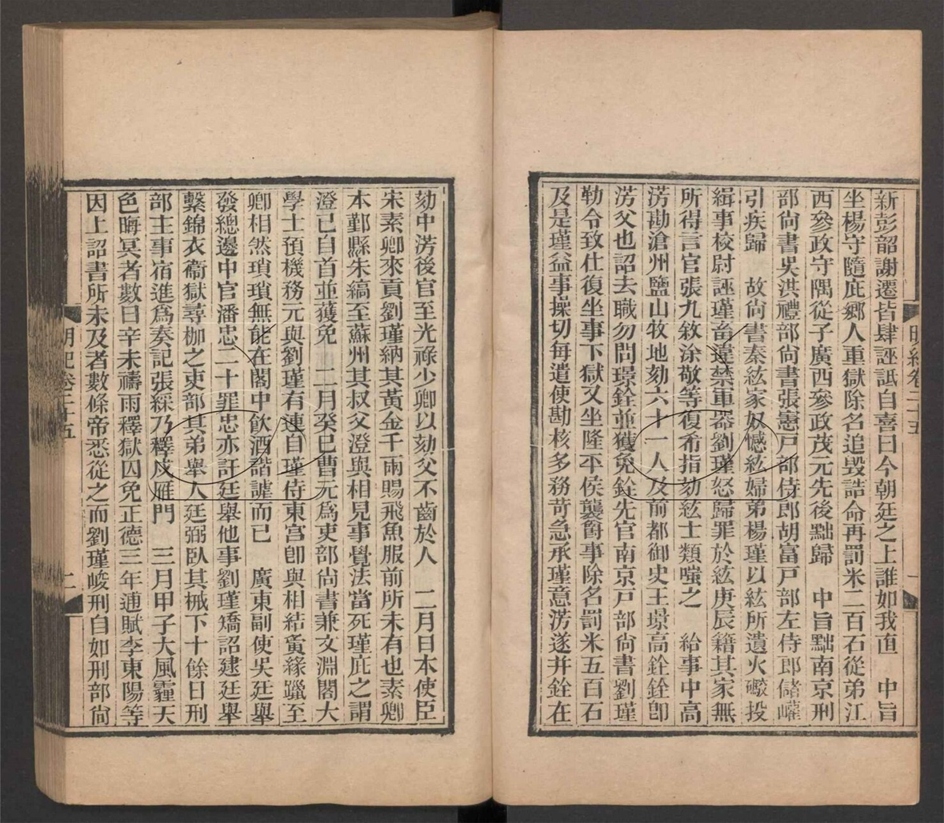 新彭韶謝遷皆肆誣詆自喜曰今朝廷之上誰如我直　中旨
坐楊守隨庇鄉人重獄除名追毀誥命再罰米二百石從弟江
西參政守隅從子廣西參政茂元先後黜歸　中旨黜南京刑
部尚書吳洪禮部尚書張憲戶部侍郎胡富戶部左侍郎儲巏
引疾歸　故尚書秦紘家奴憾紘婦弟楊瑾以紘所遺火礮投
緝事校尉誣瑾畜違禁軍器劉瑾怒歸罪於紘庚辰籍其家無
所得言官張九敘涂敬等復希指劾紘士類嗤之　給事中高
淓勘滄州鹽山牧地劾六十一人及前都御史王璟高銓銓卽
淓父也詔去職勿問璟銓並獲免銓先官南京戶部尚書劉瑾
勒令致仕復坐事下獄又坐隆平侯襲爵事除名罰米五百石
及是瑾益事操切每遣使勘核多務苛急承瑾意淓遂并銓在
明紀卷二十五
一
劾中淓後官至光祿少卿以劾父不齒於人　二月日本使臣
宋素卿來貢劉瑾納其黃金千兩賜飛魚服前所未有也素卿
本鄞縣朱縞至蘇州其叔父澄與相見事覺法當死瑾庇之謂
澄已自首並獲免　二月癸巳曹元爲吏部尚書兼文淵閣大
學士預機務元與劉瑾有連自瑾侍東宮卽與相結夤緣躐至
卿相然瑣瑣無能在閣中飲酒諧謔而已　廣東副使吳廷舉
發總邊中官潘忠二十罪忠亦訐廷舉他事劉瑾矯詔逮廷舉
繫錦衣衞獄尋枷之吏部其弟舉人廷弼臥其械下十餘日刑
部主事宿進爲奏記張綵乃釋戍雁門　三月甲子大風霾天
色晦冥者數日辛未禱雨釋獄囚免正德三年逋賦李東陽等
因上詔書所未及者數條帝悉從之而劉瑾峻刑自如刑部尚
明紀卷二十五
二